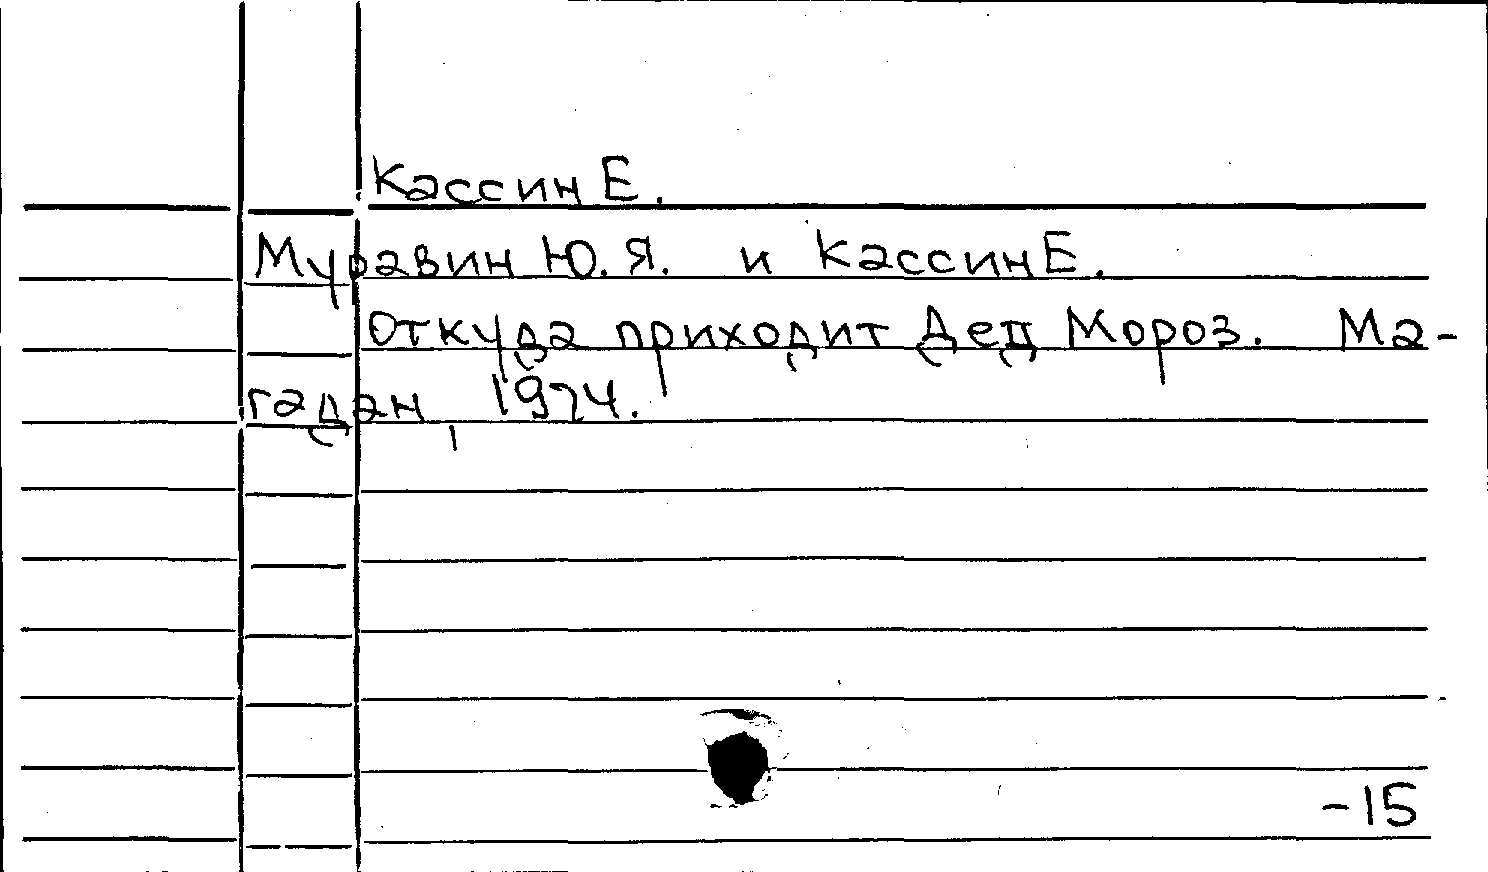 Кассин Е.
Муравин Ю. Я. и Кассин Е.
Откуда приходит Дед Мороз. Ма-
гадан, 1974.
-15